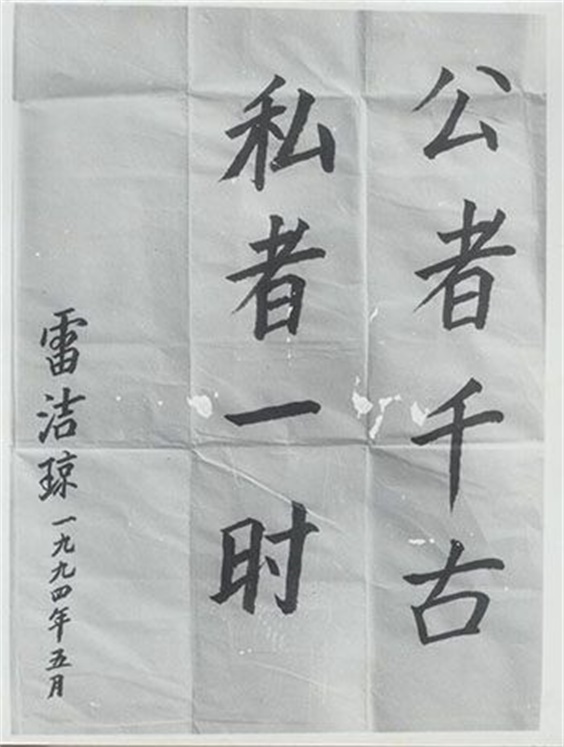 公者千古
私者一时
雷洁琼 一九九四年五月